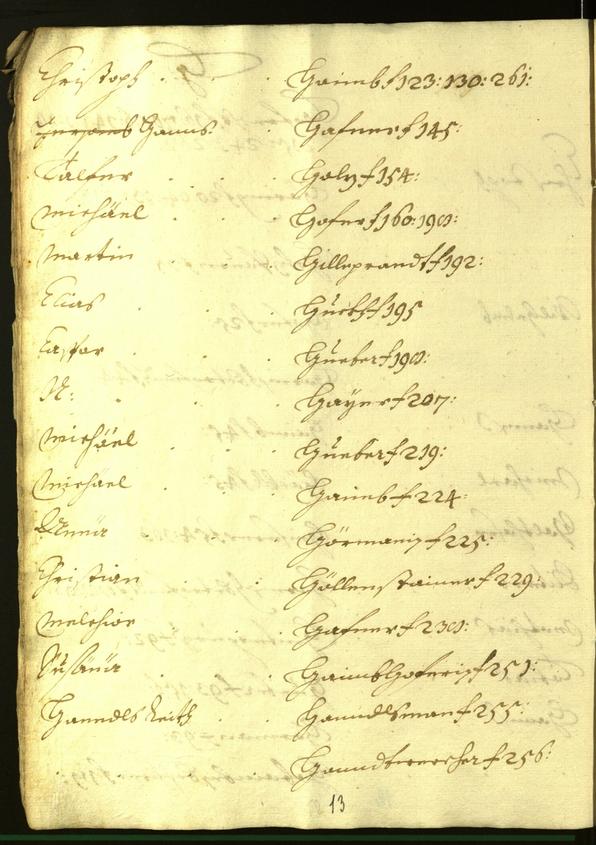 Christoph . . . Haimb f 123: 130: 261:
Hanns Hafner f 145:
Balser . . . Holz f 154:
Michäel . . . Hofer f 160: 190:
Martin . . . Hilleprandt f 192:
Elias . . . f 195
Caspar . . . Hueber f 190:
N: . . . Hayer f 207:
Michäel . . . Hueber f 219:
Michael . . . Haimb f 224
Anna . . . f 225:
Christian . . . Höllenstainer f 229:
Melchior . . . Hafner f 230:
Susana . . . Haimbhoferin f 251:
Hanndls Handlsman f 255:
Handtwercher f 256:
13